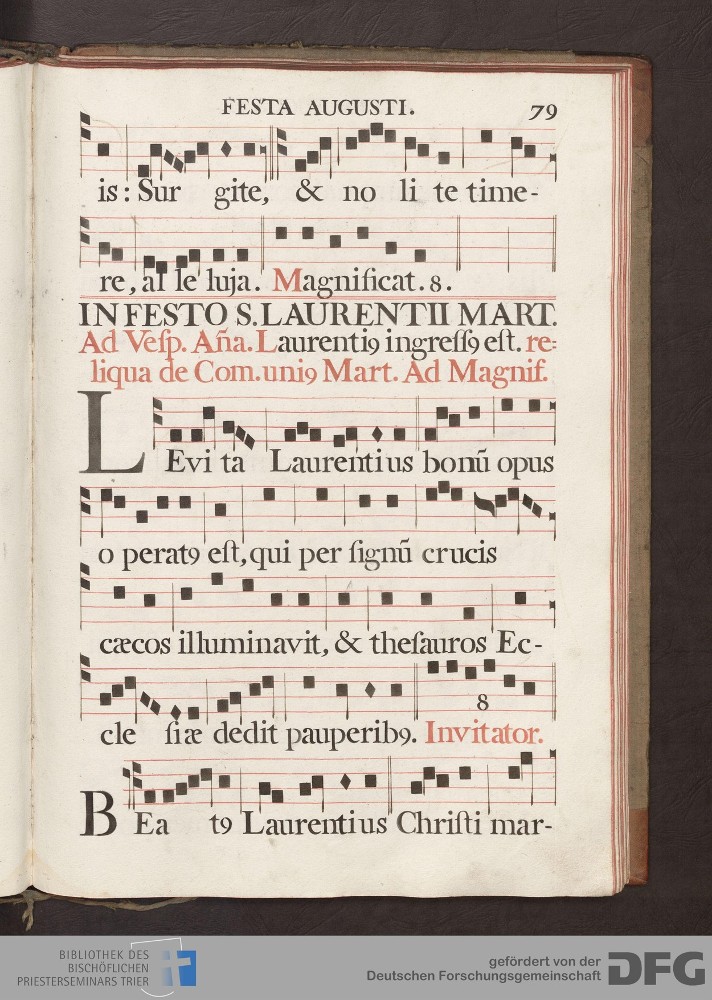 FESTA AUGUSTI. 79
is: Sur gite, & no li te time-
re, al le luja. Magnificat. 8.
IN FESTO S. LAURENTII MART.
Ad Veſp. Aña. Laurentiꝯ ingreſſꝯ eſt. re=
liqua de Com. uniꝯ Mart. Ad Magnif.
LEvi ta Laurentius bonū opus
o peratꝯ eſt, qui per ſignū crucis
cæcos illuminavit, & theſauros Ec-
8
cle ſiæ dedit pauperibꝯ. Invitator.
BEa tꝯ Laurentius Chriſti mar-
BIBLIOTHEK DES
BISCHÖFLICHEN
PRIESTERSEMINARS TRIER
gefördert von der
Deutschen Forschungsgemeinschaft
DFG